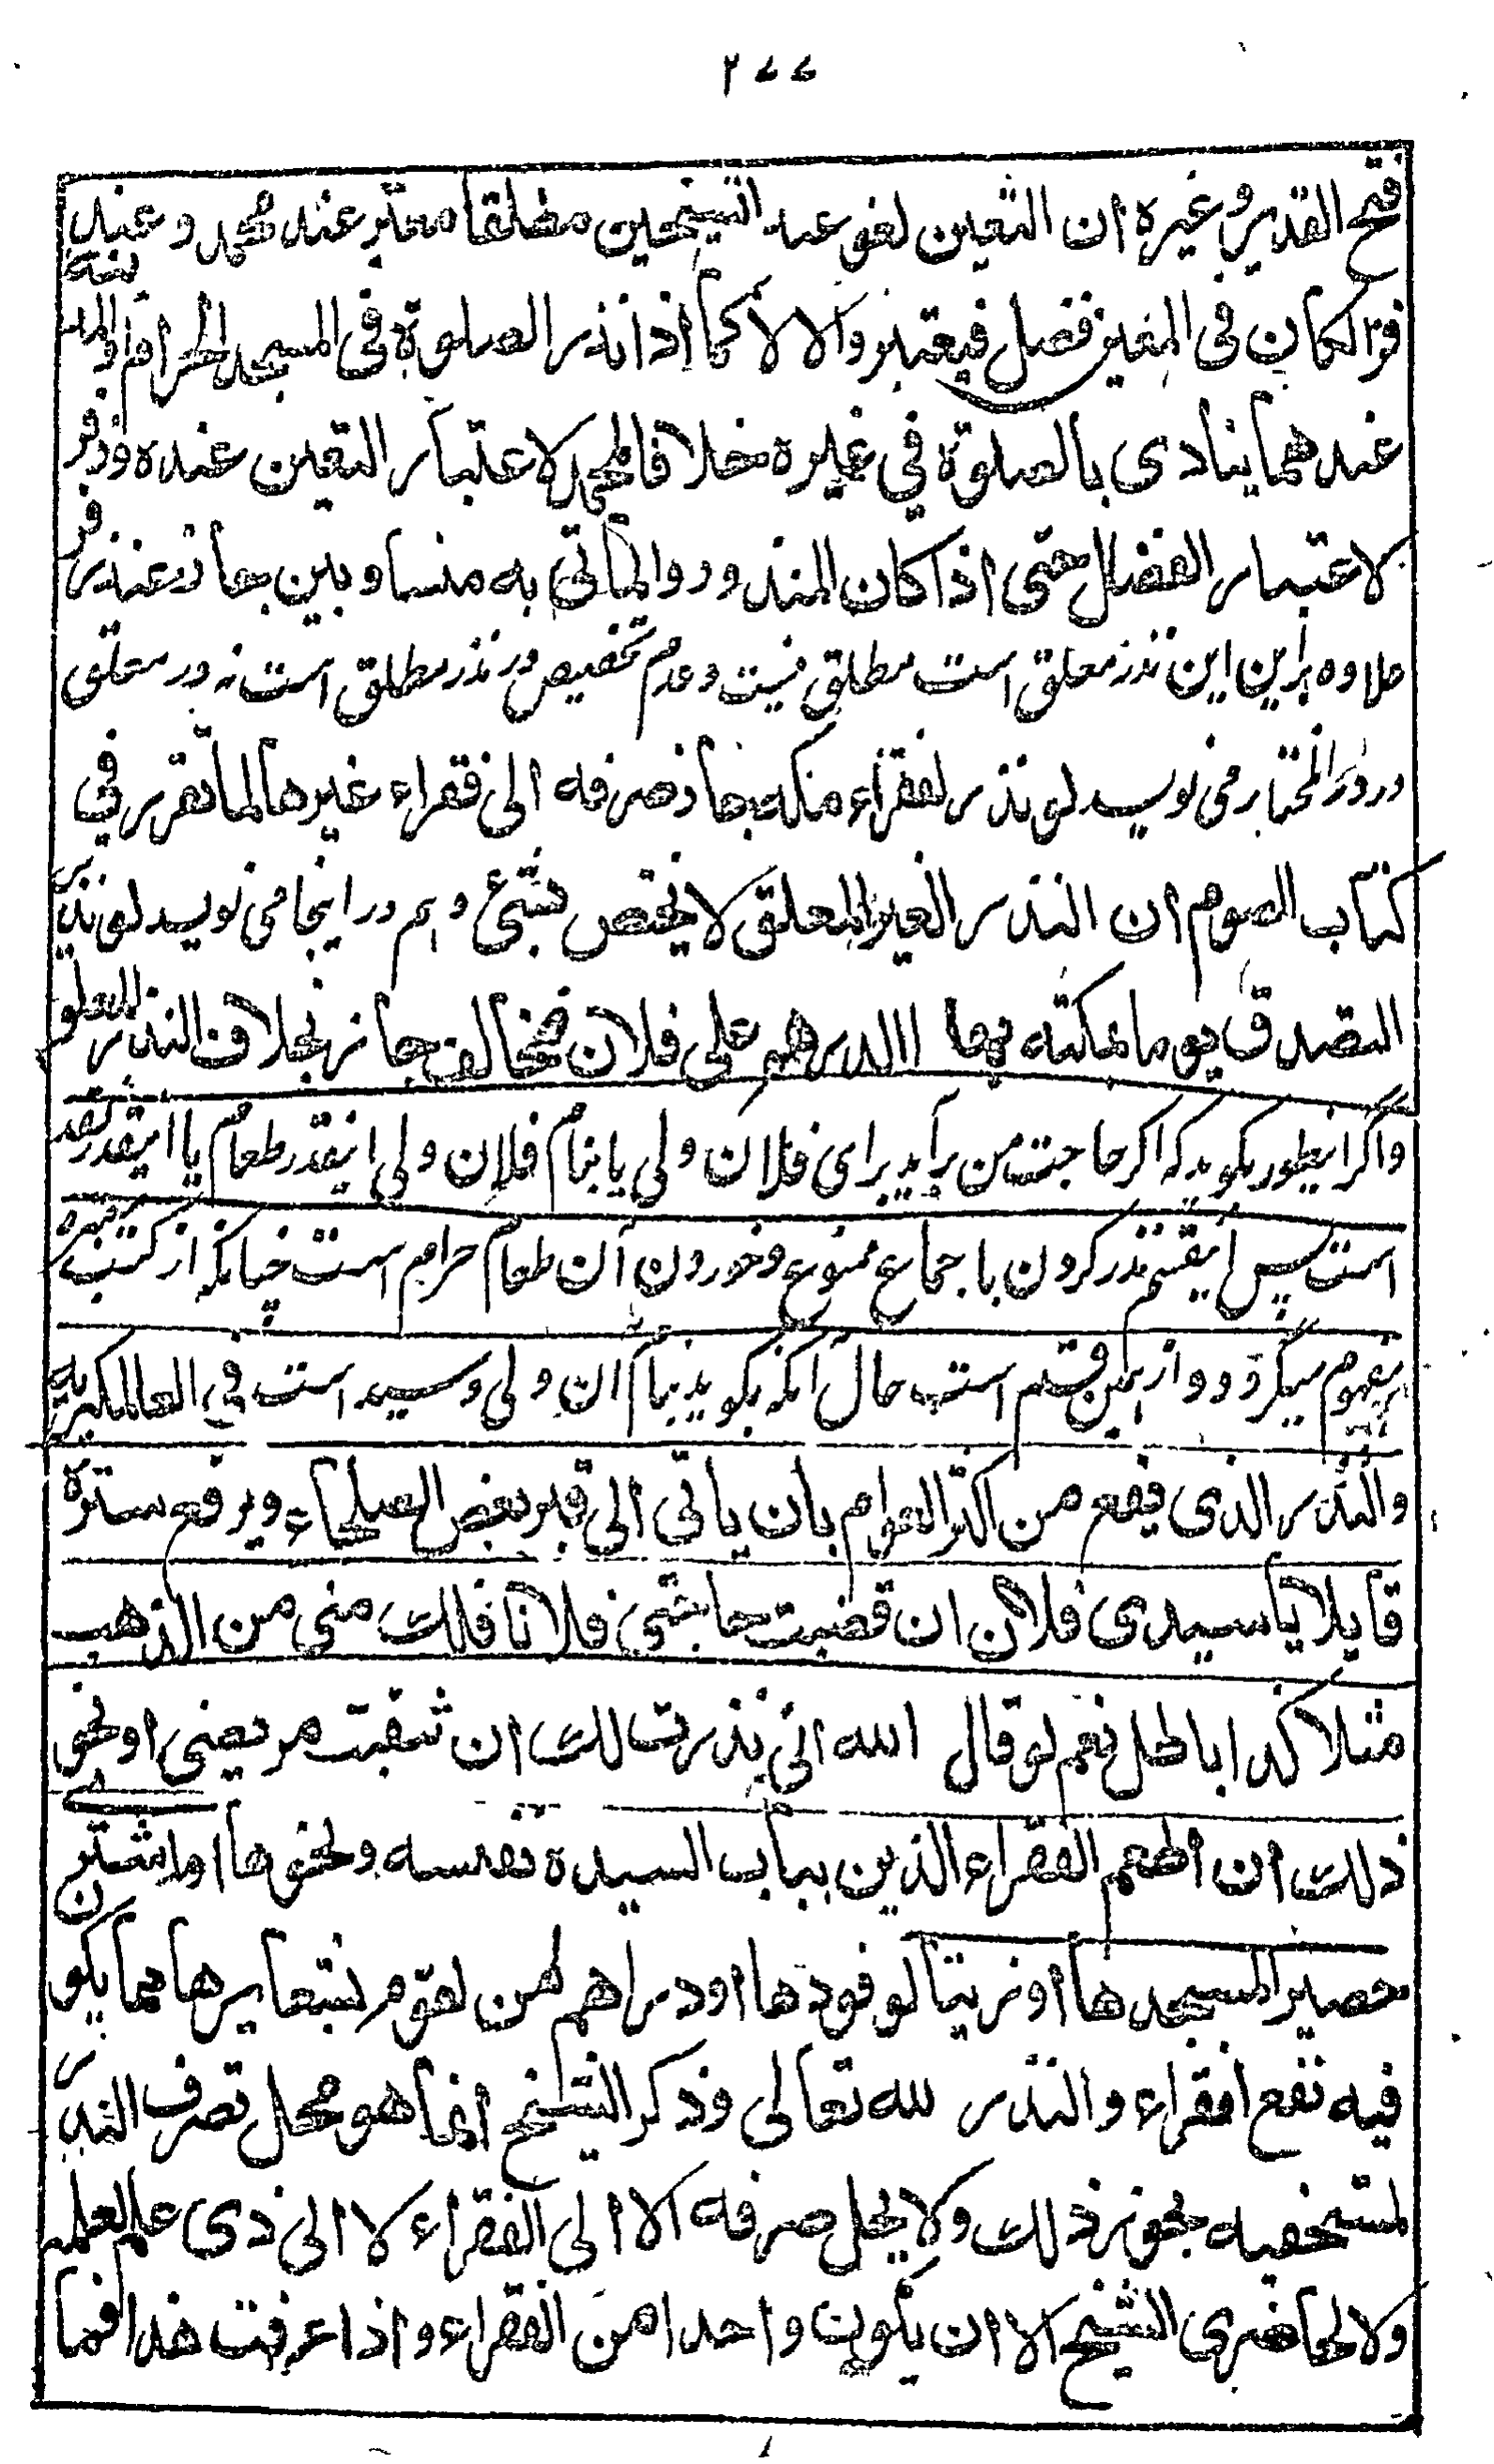 ۲۷۷
فتح القدیر وغیره ان التعین لغو عند الشیخین مطلقا معتبر عند محمد و عند
فر الکان فی المعین فضل فیعتبر والا لا کما اذا نذر الصلوة فی المسجد الحرام
عندهما ینادی بالصلوة فی غیره خلافا لمحمد لاعتبار التعین عنده وزفر
لاعتبار الفضل حتی اذا کان المنذور والماتی به متساویین جاز عند زفر
علاوه براین این نذر معلق است مطلق نیست وعدم تخصیص در نذر مطلق است نه در معلق
در در المختار می نویسد لو نذر لفقراء مکه جاز صرفه الی فقراء غیرها لما تقرر فی
کتاب الصوم ان النذر الغیر المعلق لا یختص بشئ و هم در اینجا می نویسد لو نذر
التصدق یوما بمکته بهذا الدرهم علی فلان فخالف جاز بخلاف النذر المعلق
واگر اینطور بگوید که اگر حاجت من برآید برای فلان ولی یا بنام فلان ولی اینقدر طعام یا اینقدر نقد
است پس اینقسم نذر کردن باجماع ممنوع وخوردن آن طعام حرام است چنانکه از کتب معتبره
مفهوم میگردد و از همین قسم است حال آنکه بگوید بنام آن ولی وسید است فی العالمگیریه
والنذر الذی یقع من اکثر العوام بان یاتی الی قبر بعض الصلحاء ویرفع ستره
قایلا یا سیدی فلان ان قضیت حاجتی فلانا فلک منی من الذهب
مثلا کذا باطل نعم لو قال الله انی نذرت لک ان شفیت مریضی او نحو
ذلک ان اطعم الفقراء الذین بباب السیده نفسه ونحوها او اشتری
حصیرا لمسجدها او زیتا لوقودها او دراهم لمن یقوم بشعایرها مما یکون
فیه نفع افقراء والنذر لله تعالی وذکر الشیخ انما هو محل تصرف النذر
لمستحقیه یجوز ذلک ولا یحل صرفه الا الی الفقراء لا الی ذی علم لعلمه
ولا لحاضری الشیخ الا ان یکون واحدا من الفقراء واذا عرفت هذا فما